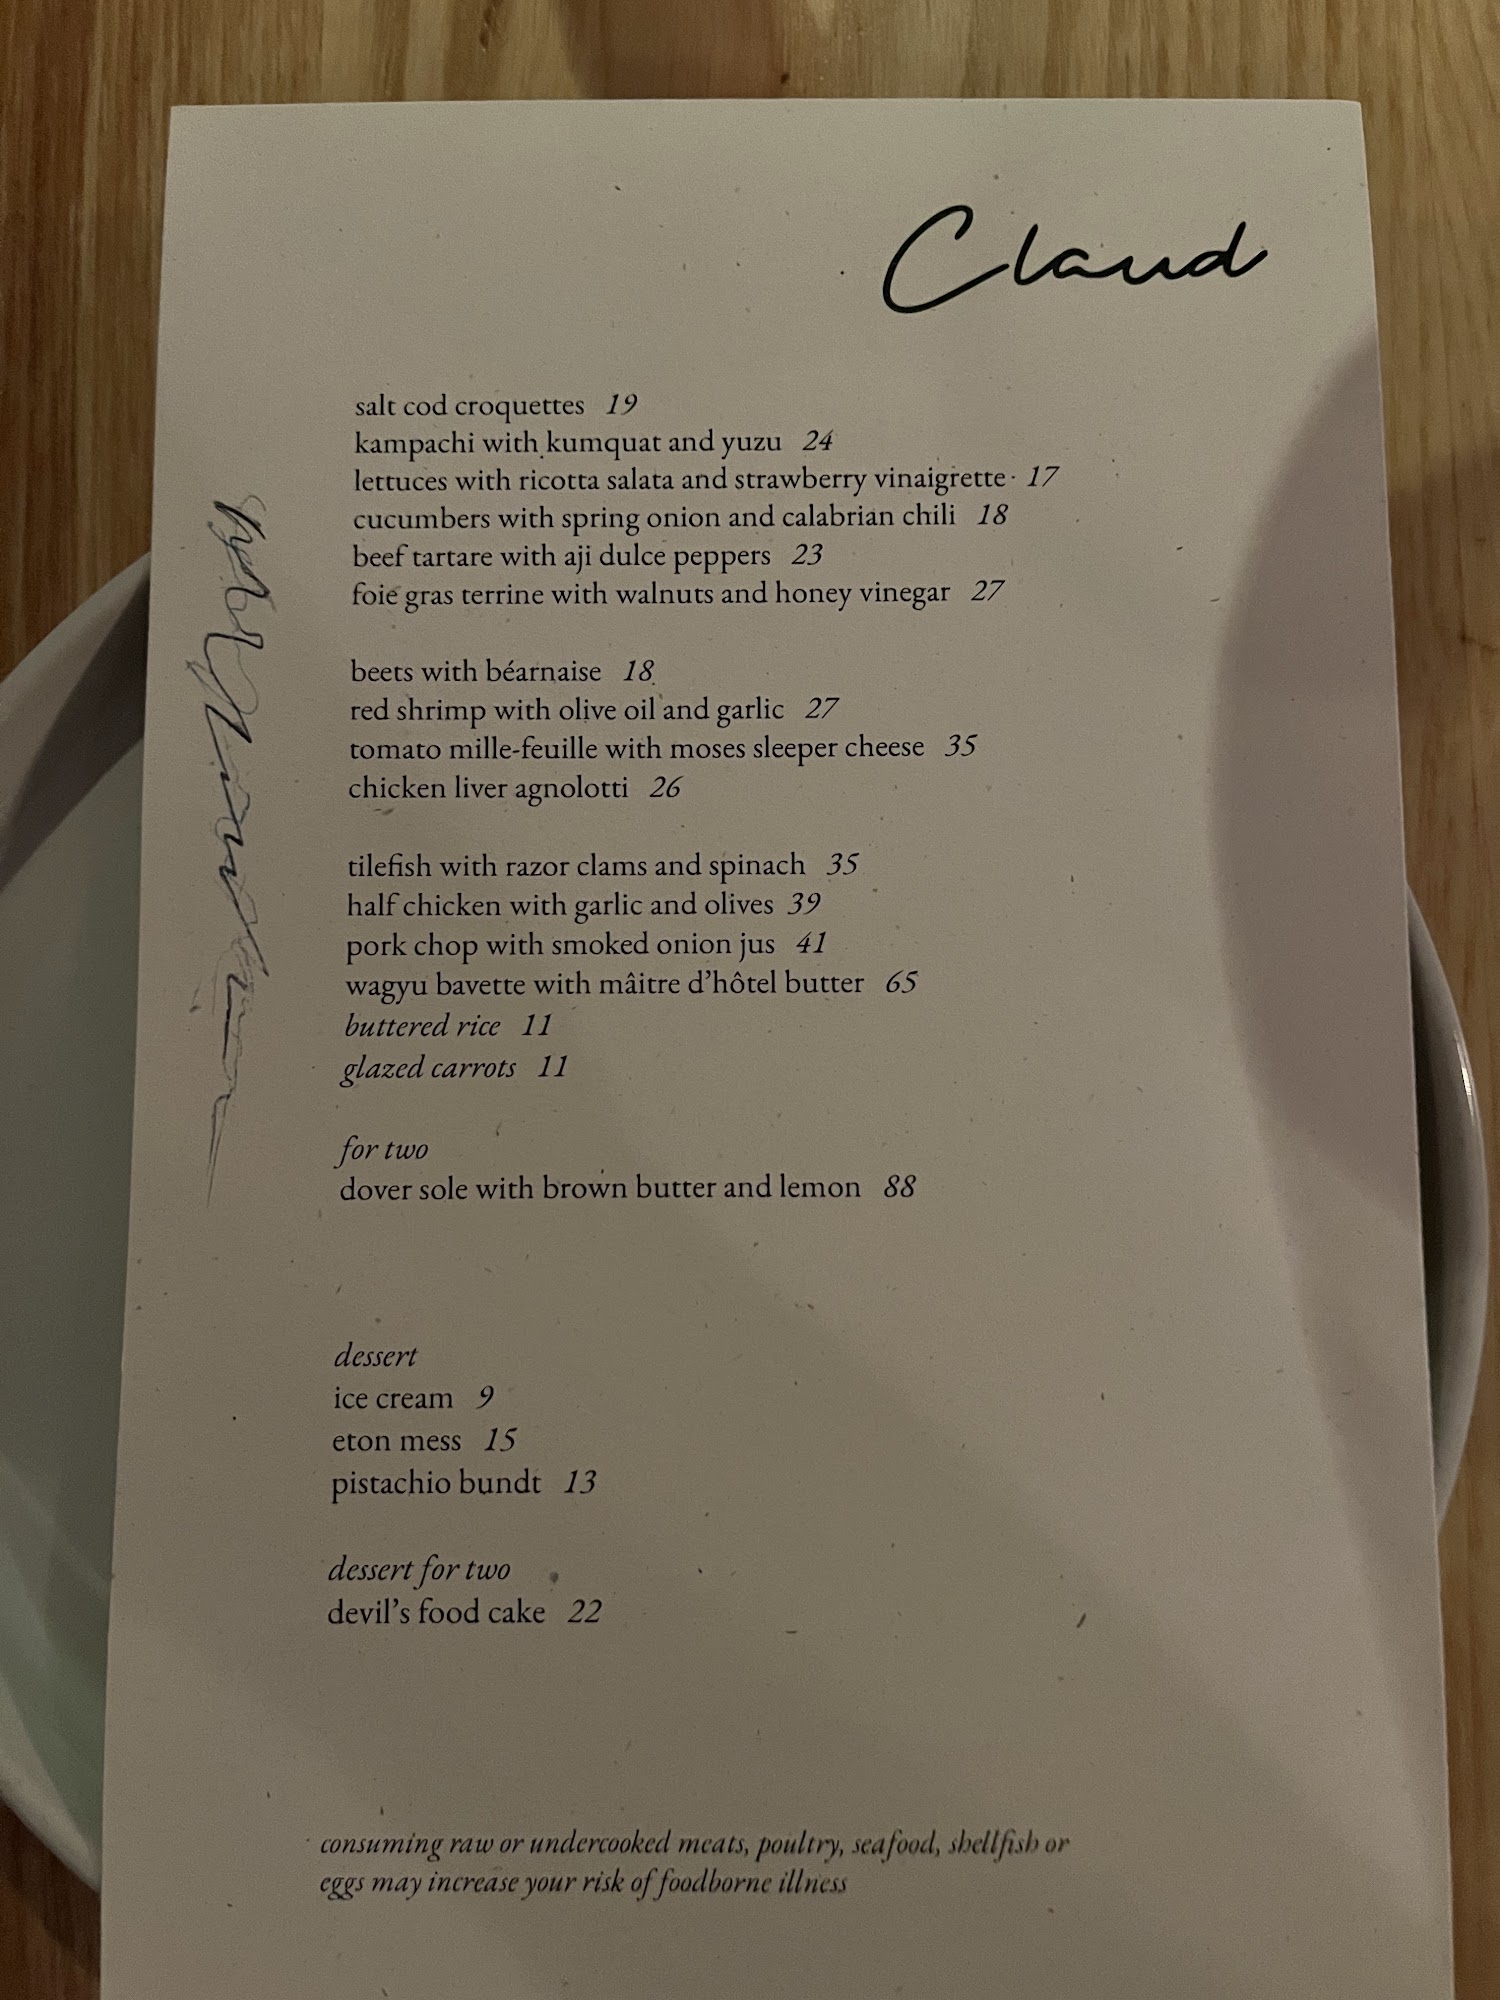 Claud
salt cod croquettes 19
kampachi with kumquat and yuzu 24
lettuces with ricotta salata and strawberry vinaigrette 17
cucumbers with spring onion and calabrian chili 18
beef tartare with aji dulce peppers 23
foie gras terrine with walnuts and honey vinegar 27
beets with béarnaise 18
red shrimp with olive oil and garlic 27
tomato mille-feuille with moses sleeper cheese 35
chicken liver agnolotti 26
tilefish with razor clams and spinach 35
half chicken with garlic and olives 39
pork chop with smoked onion jus 41
wagyu bavette with mâitre d’hôtel butter 65
buttered rice 11
glazed carrots 11
for two
dover sole with brown butter and lemon 88
dessert
ice cream 9
eton mess 15
pistachio bundt 13
dessert for two
devil’s food cake 22
consuming raw or undercooked meats, poultry, seafood, shellfish or
eggs may increase your risk of foodborne illness